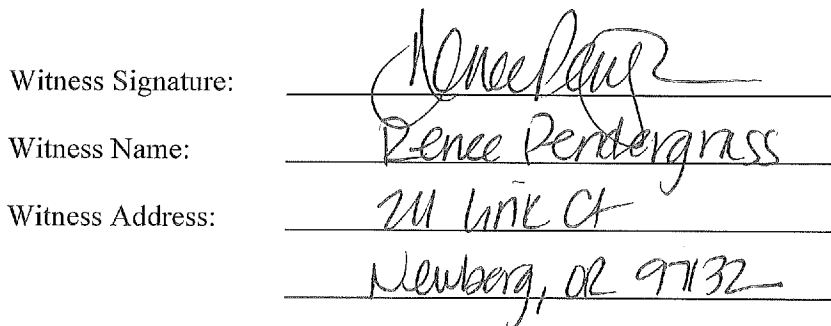 Witness Signature: Renee Pen
Witness Name: Renee Pendergrass
Witness Address: 211 Link Ct
Newberg, OR 97132